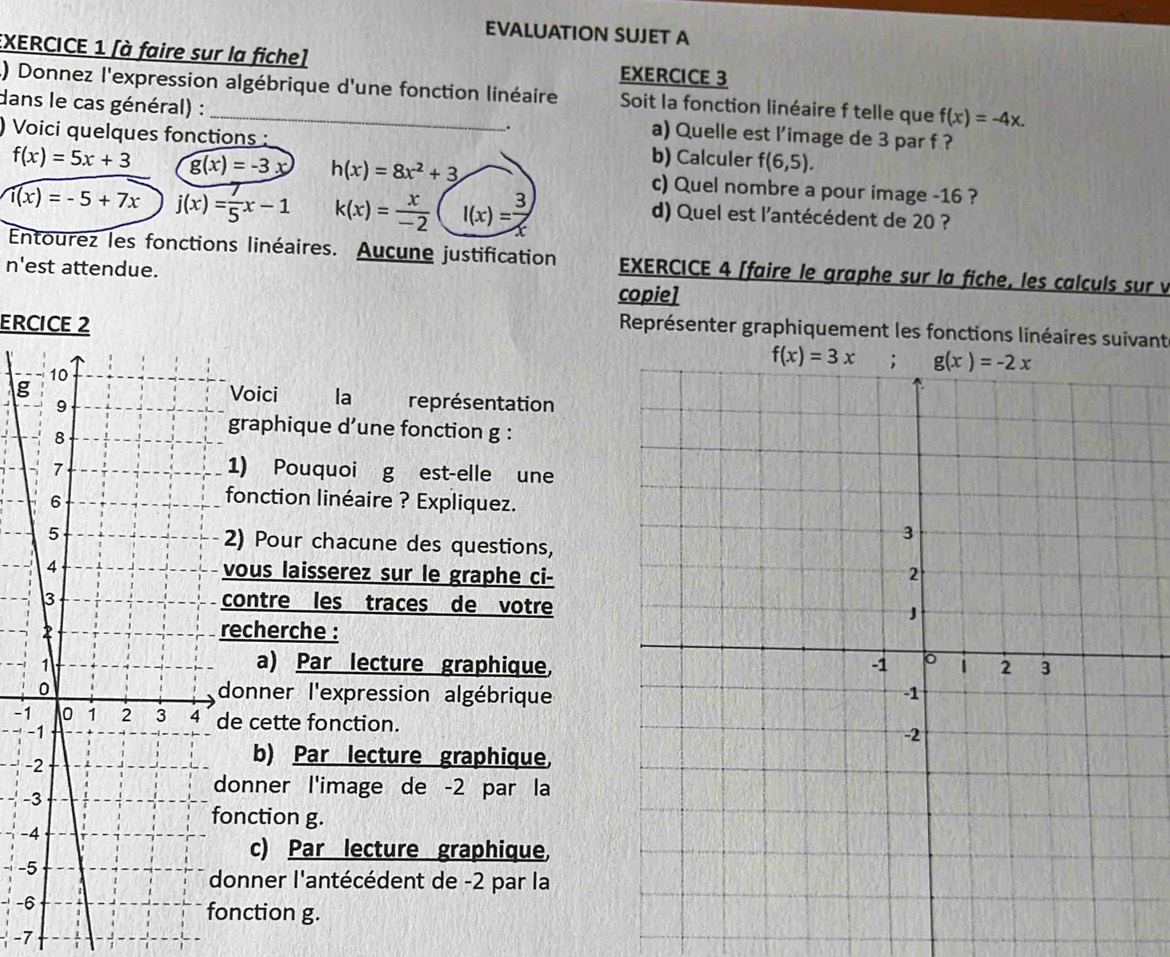 EVALUATION SUJET A
EXERCICE 1 [à faire sur la fiche]
) Donnez l'expression algébrique d'une fonction linéaire
dans le cas général) : ____________.
) Voici quelques fonctions :
f(x) = 5x + 3 g(x) = -3 x h(x) = 8x² + 3
i(x) = - 5 + 7x j(x) = 7/5 x − 1 k(x) = x/−2 l(x) = 3/x
Entourez les fonctions linéaires. Aucune justification
n'est attendue.
ERCICE 2
g
10
9
8
7
6
5
4
3
2
1
0
-1 0 1 2 3 4
-1
-2
-3
-4
-5
-6
-7
Voici la représentation
graphique d'une fonction g :
1) Pouquoi g est-elle une
fonction linéaire ? Expliquez.
2) Pour chacune des questions,
vous laisserez sur le graphe ci-
contre les traces de votre
recherche :
a) Par lecture graphique,
donner l'expression algébrique
de cette fonction.
b) Par lecture graphique,
donner l'image de -2 par la
fonction g.
c) Par lecture graphique,
donner l'antécédent de -2 par la
fonction g.
EXERCICE 3
Soit la fonction linéaire f telle que f(x) = -4x.
a) Quelle est l'image de 3 par f ?
b) Calculer f(6,5).
c) Quel nombre a pour image -16 ?
d) Quel est l'antécédent de 20 ?
EXERCICE 4 [faire le graphe sur la fiche, les calculs sur v
copie]
Représenter graphiquement les fonctions linéaires suivant
f(x) = 3 x ; g(x ) = -2 x
3
2
1
-1 0 1 2 3
-1
-2